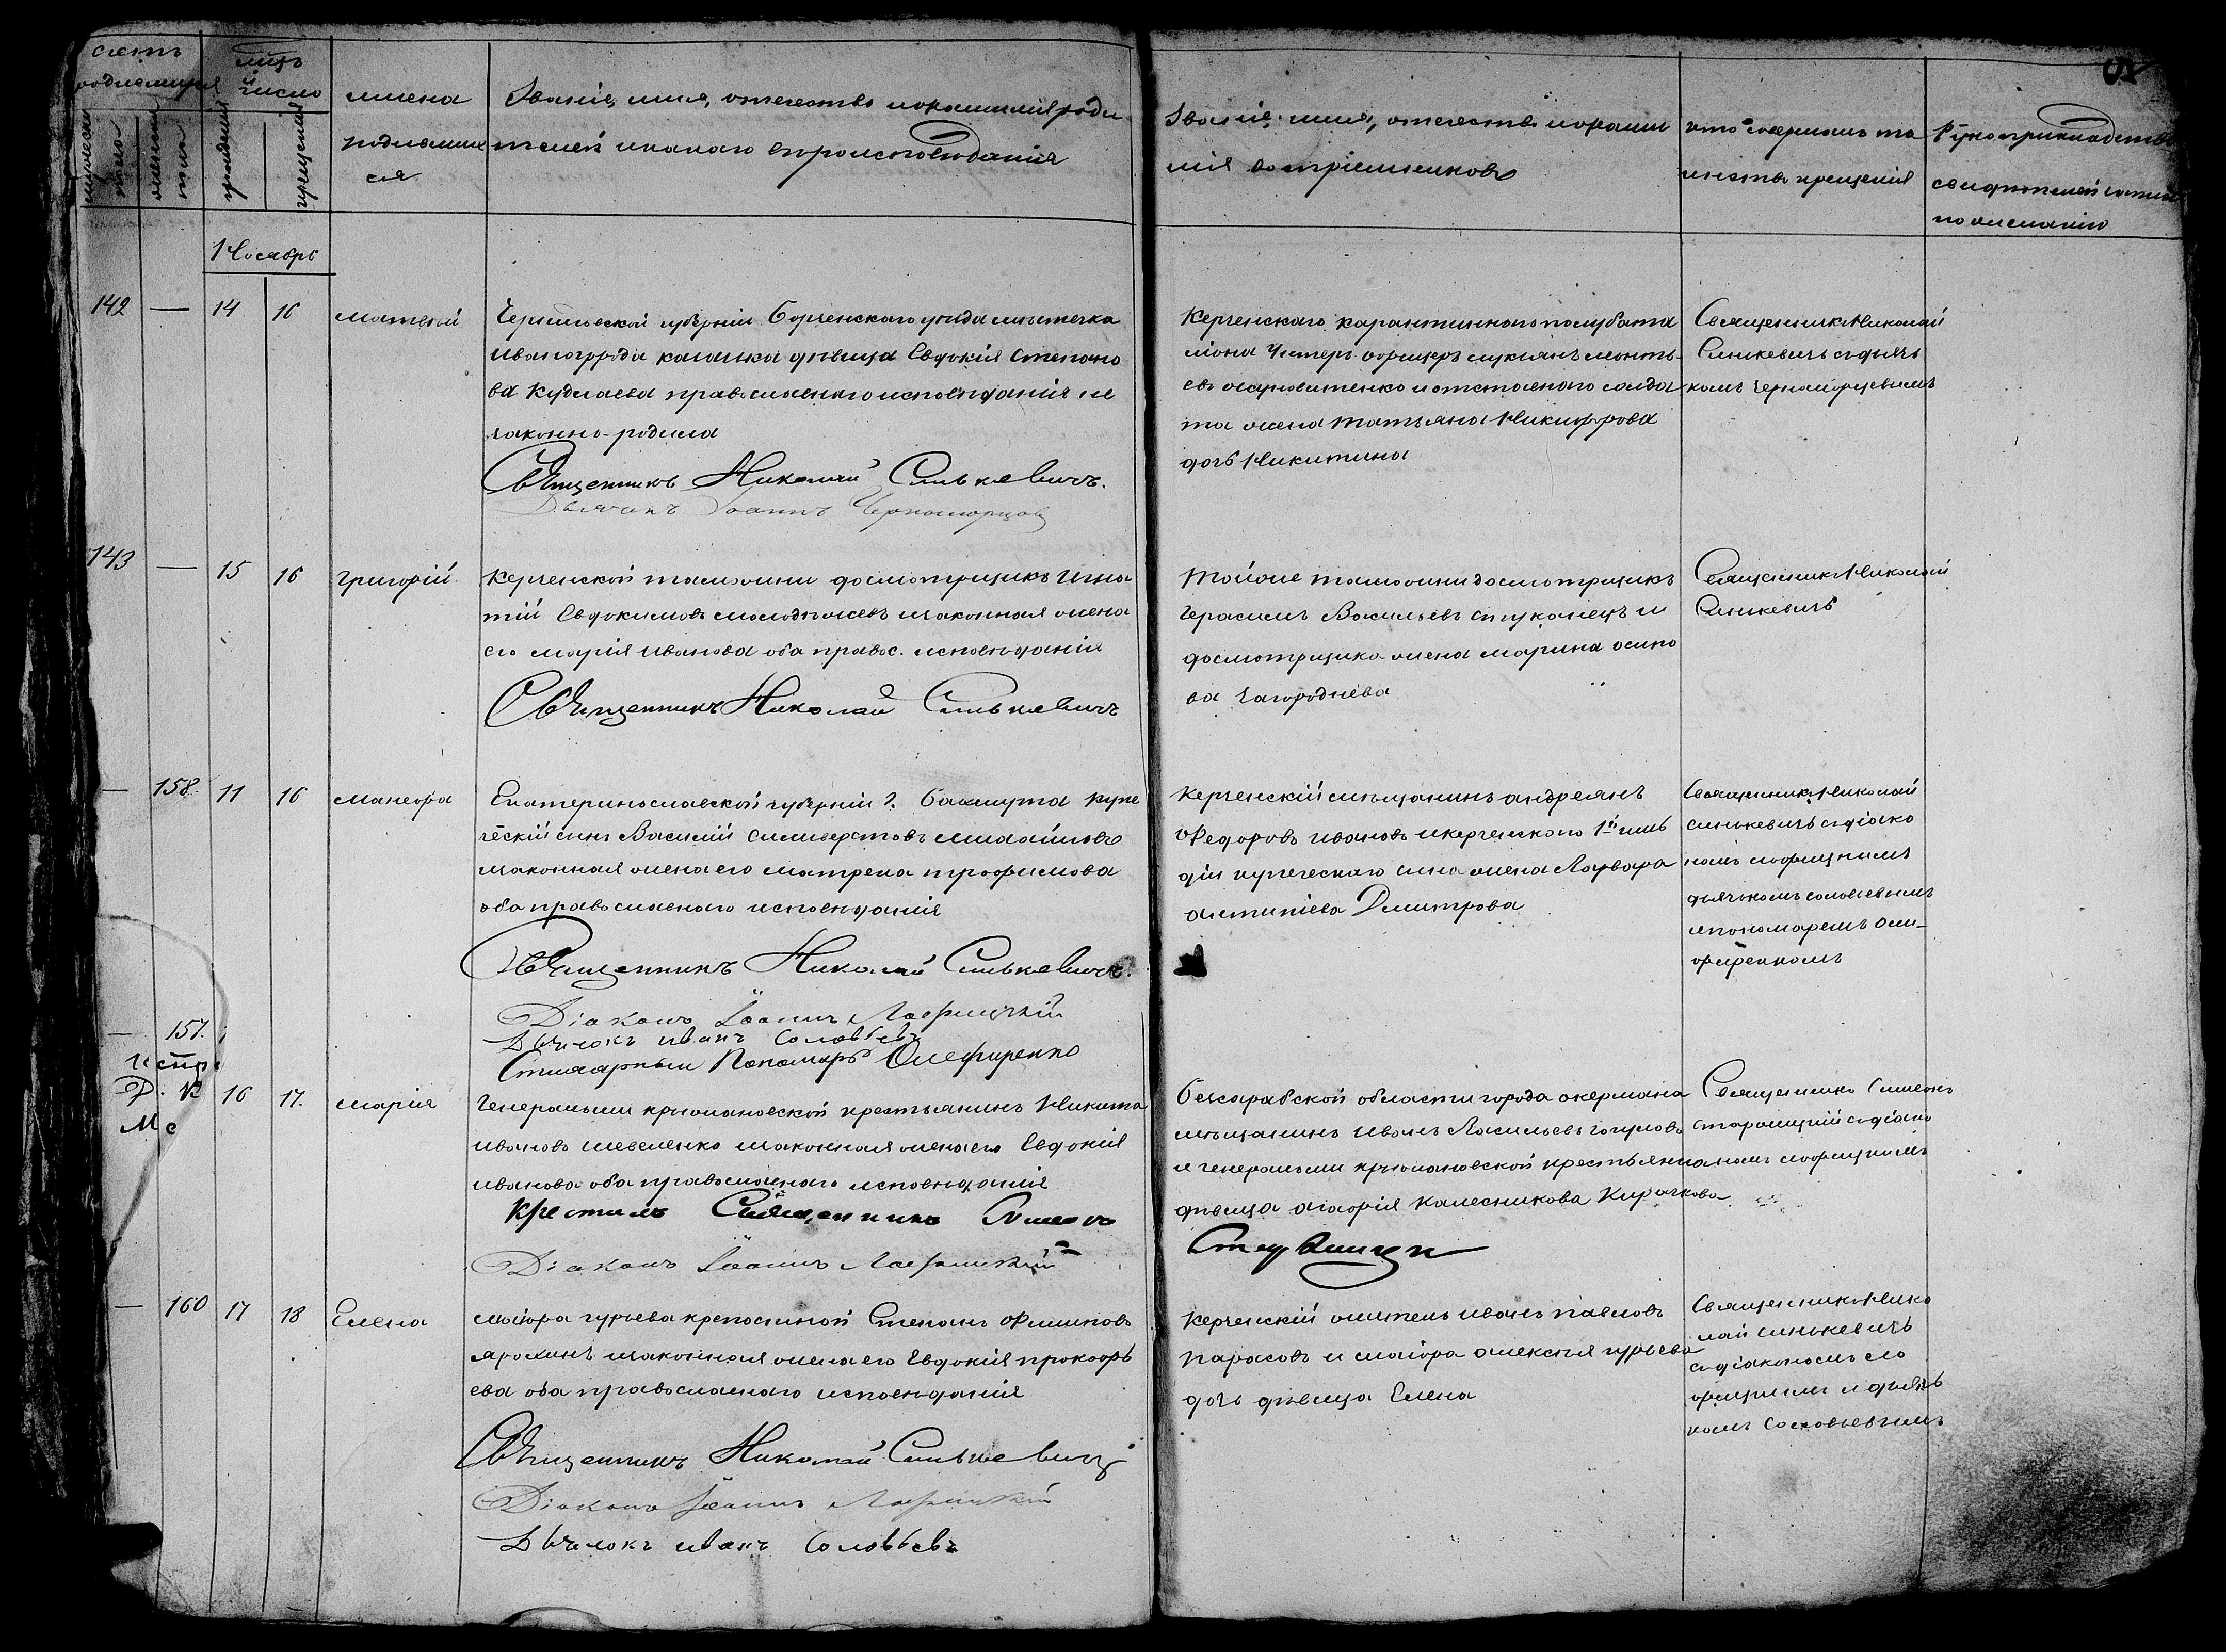 счетъ
родившихся
мужеска
пола
женска
пола
мцъ
и
число
рожденія
крещенія
имена
родивших
ся
Званіе, имя, отечество и фамилія роди
телей и какого вѣроисповѣданія
Званіе, имя, отечество и фами
лія воспріемниковъ
кто совершалъ та
инство крещенія
Рукоприкладство
свидѣтелей записи
по желанію
Ноябрь
142 — 14 16 Матвей
Черниговской губерніи Борзенскаго уѣзда мѣстечка
Ивангорода казачка дѣвица Евдокія Степано
ва Кудлаева православнаго исповѣданія не
законно-родила
Священникъ Николай Синькевичъ.
Дьячекъ Іоаннъ Черноморцов
Керченскаго карантиннаго полубата
ліона Унтеръ офицеръ
и отставного солда
та жена Татьяна Никифорова
дочь Никитина
Священникъ Николай
Синкевичъ съ дьяч
комъ Черноморцевымъ
143 — 15 16 Григорій
Керченской таможни досмотрщикъ Игна
тій Евдокимовъ законная жена
его Марія Иванова оба правос. исповѣданія
Священникъ Николай Синькевичъ
Тойже таможни досмотрщикъ
Герасимъ Васильевъ Стуканецъ и
досмотрщика жена Марина Осипо
ва Загороднева
Священникъ Николай
Синкевичъ
— 158. 11 16 Манефа
Екатеринославской губерніи г. Бахмута купе
ческій сынъ Василій Силиверстовъ Михайловъ
законная жена его Матрена Трофимова
оба православнаго исповѣданія
Священникъ Николай Синькевичъ.
Діаконъ Іоаннъ Лафицкій
Дьячокъ Иванъ Соловьевъ
Стихарный Пономарь Олефиренко
Керченскій мѣщанинъ Андреянъ
Федоровъ Ивановъ и керченскаго 1й гиль
діи купеческаго сына жена Варвара
Антипіева Дмитрова
Священникъ Николай
Синькевичъ съ діако
номъ Лофицкимъ
дьячкомъ Соловьевымъ
и пономаремъ Оли-
фиренкомъ
— 157.
16 17. Марія
Генеральши крестьянинъ Никита
Ивановъ Шевеленко законная жена его Евдокія
Иванова оба православнаго исповѣданія
Крестилъ Священникъ Симеонъ
Діаконъ Іоаннъ Лафицкій
Безсарабской области города Акермана
мѣщанинъ Иванъ Васильевъ
и генеральши крестьянина
дѣвица Калесникова
Священникъ Симеонъ
съ діако
номъ Лофицкимъ
— 160 17 18 Елена
Маіора Гурьева крепостной Степанъ Филиповъ
законная жена его Евдокія Прокофь
ева оба православнаго исповѣданія
Священникъ Николай Синькевичъ
Діаконъ Іоаннъ Лафицкій
Дьячокъ Иванъ Соловьевъ
Керченскій житель Иванъ Павловъ
Парасовъ и маіора Алексѣя Гурьева
дочь дѣвица Елена
Священникъ Нико
лай Синькевичъ
съ діакономъ Ло
фицкимъ и дьяч
комъ Соловьевымъ